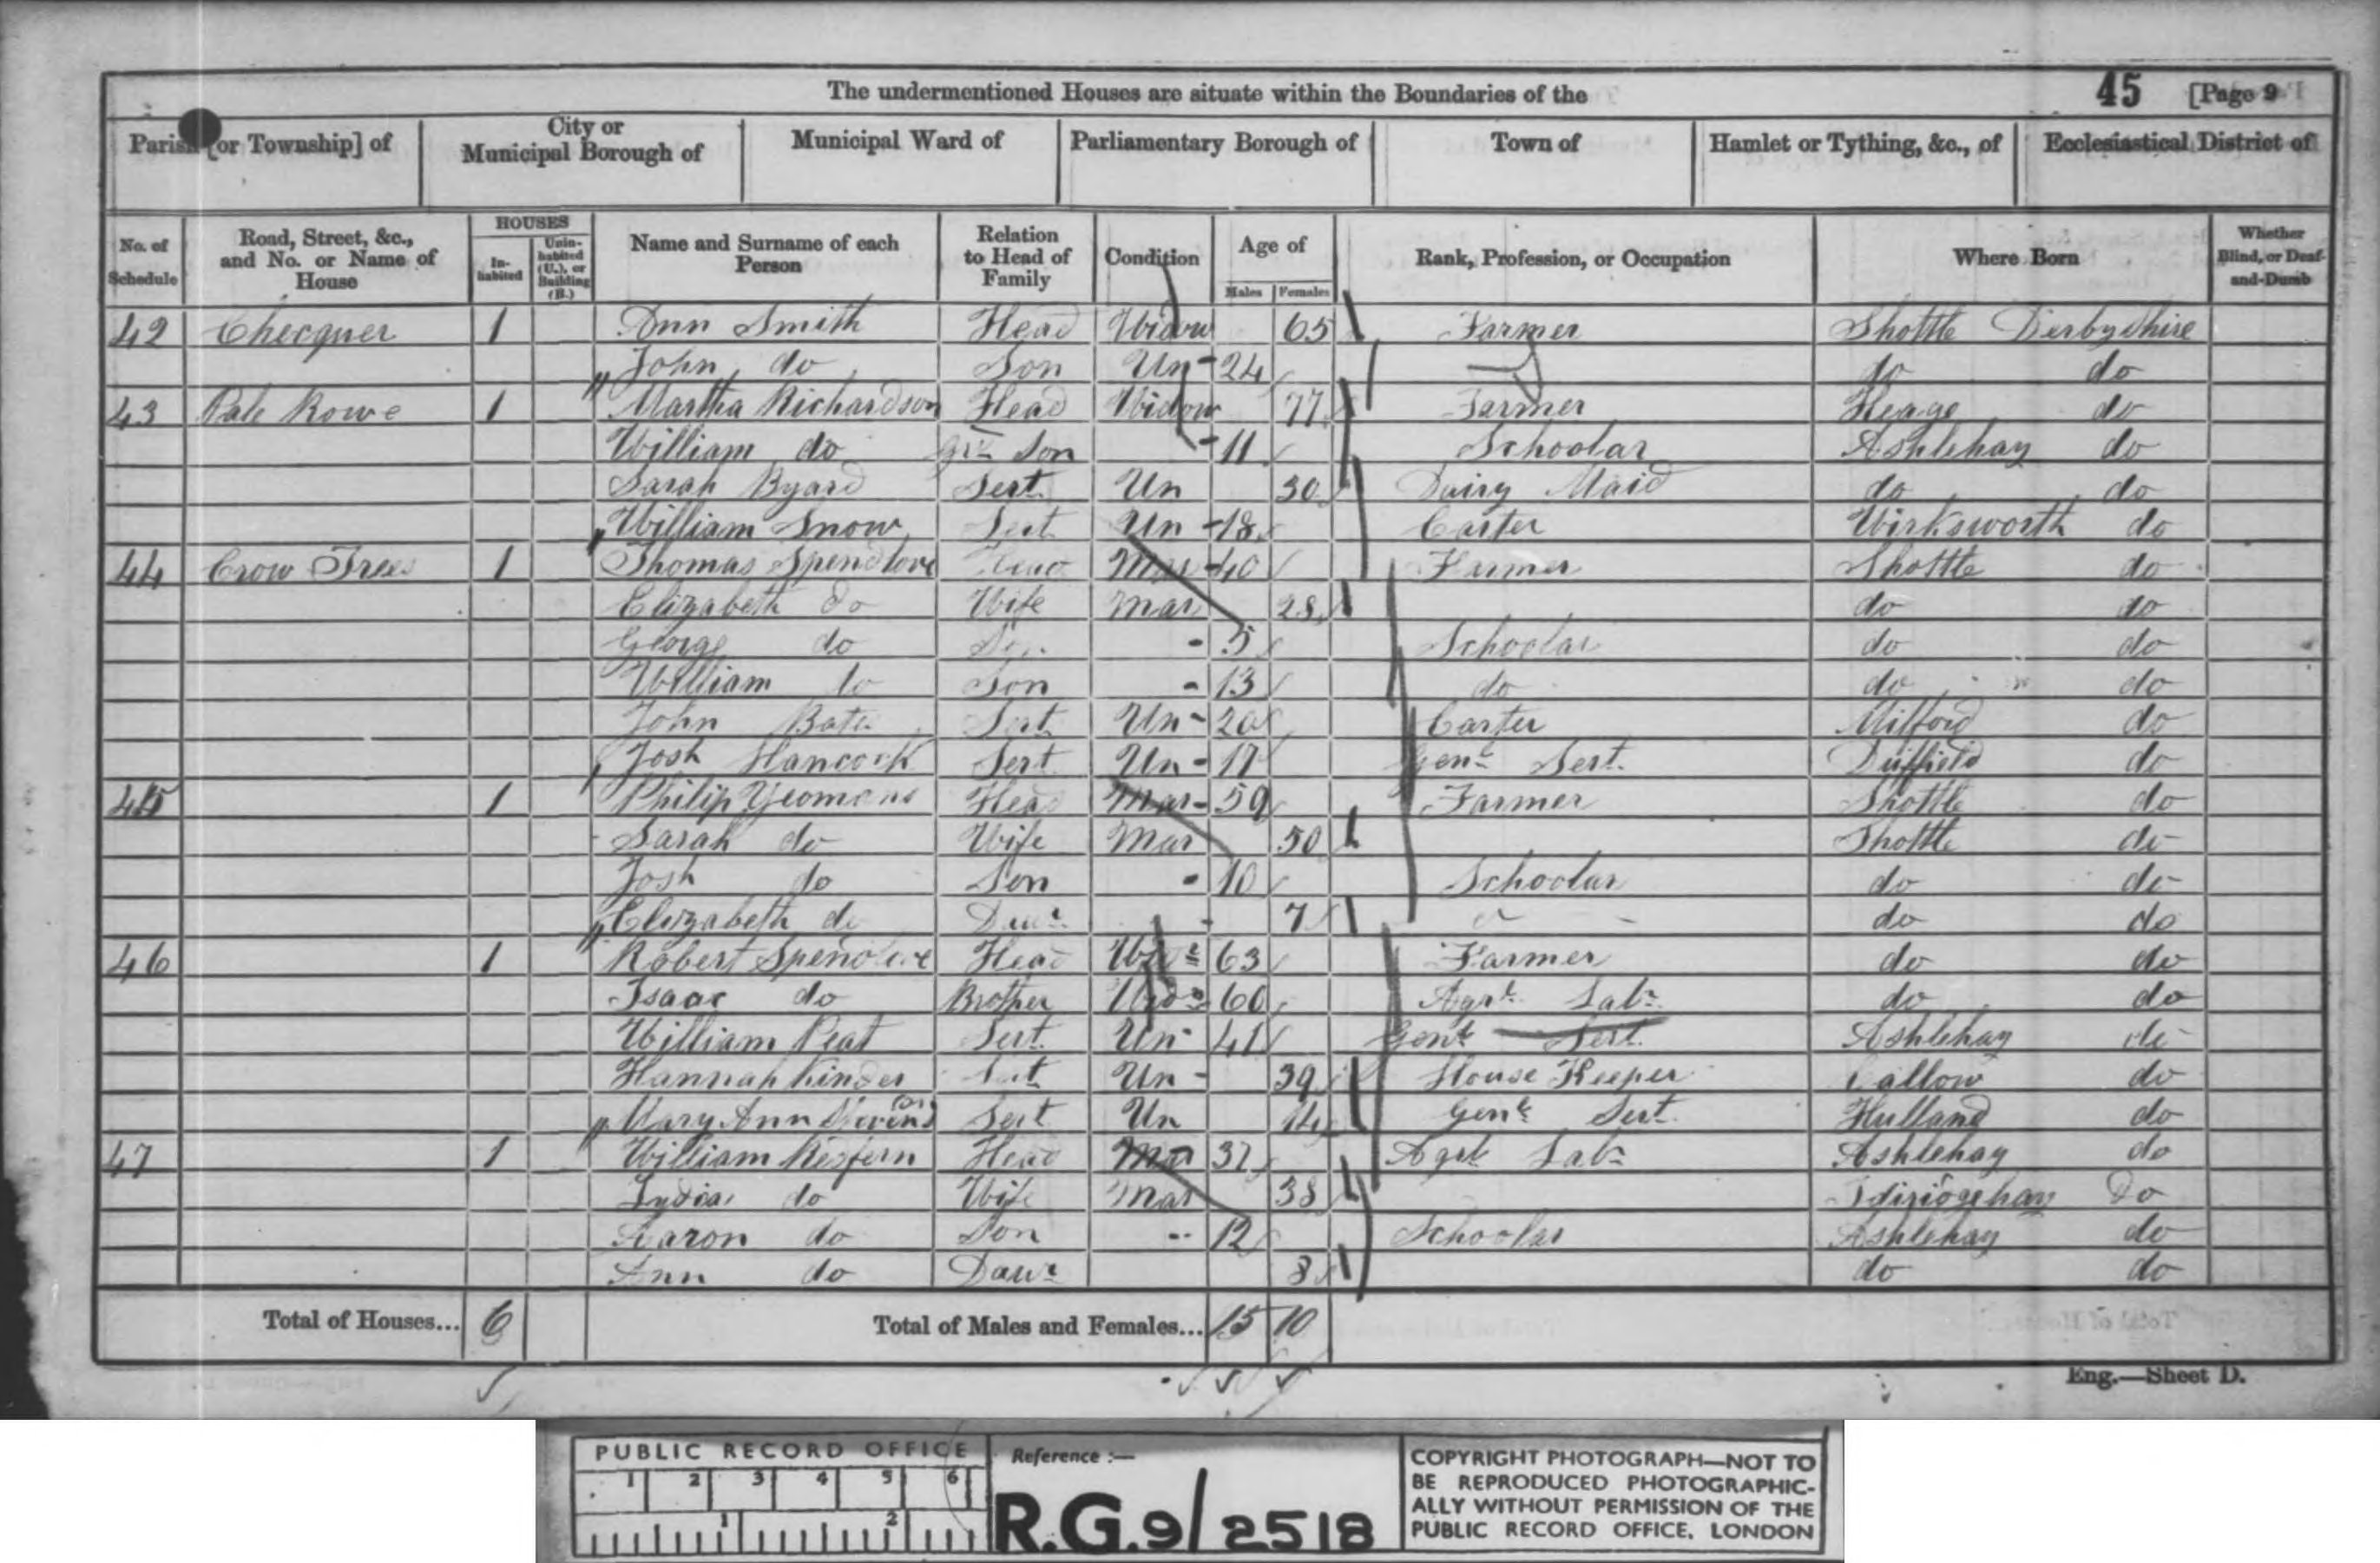 The undermentioned Houses are situate within the Boundaries of the 45 [Page 9
Parish [or Township] of City or Municipal Borough of Municipal Ward of Parliamentary Borough of Town of Hamlet or Tything, &c., of Ecclesiastical District of
No. of Schedule Road, Street, &c., and No. or Name of House HOUSES Inhabited Uninhabited (U.), or Building (B.) Name and Surname of each Person Relation to Head of Family Condition Age of Males Females Rank, Profession, or Occupation Where Born Whether Blind, or Deaf-and-Dumb
42 Checquer 1 Ann Smith Head Widow 65 Farmer Shottle Derbyshire
John do Son Un 24 do do
43 Pale Rowe 1 Martha Richardson Head Widow 77 Farmer Heage do
William do Son 11 Schoolar Ashlehay do
Sarah Byard Sert Un 30 Dairy Maid do do
William Snow Sert Un 18 Carter Wirksworth do
44 Crow Trees 1 Thomas Spendlove Head Mar 40 Farmer Shottle do
Elizabeth do Wife Mar 28 do do
George do Son 5 Schoolar do do
William do Son 13 do do do
John Bates Sert Un 20 Carter Milford do
Josh Hancock Sert Un 17 Genl Sert Duffield do
45 1 Philip Yeomans Head Mar 59 Farmer Shottle do
Sarah do Wife Mar 50 Shottle do
Josh do Son 10 Schoolar do do
Elizabeth do Daur 7 do do
46 1 Robert Spendlove Head Widr 63 Farmer do do
Isaac do Brother Widr 60 Agrl Labr do do
William Peat Sert Un 41 Genl Sert Ashlehay do
Hannah Kinder Sert Un 39 House Keeper Callow do
Mary Ann Sert Un 14 Genl Sert Hulland do
47 1 William Redfern Head Mar 37 Agrl Labr Ashlehay do
Lydia do Wife Mar 38 Do
Aaron do Son 12 Schoolar Ashlehay do
Ann do Daur 8 do do
Total of Houses... 6 Total of Males and Females... 15 10
Eng.—Sheet D.
PUBLIC RECORD OFFICE Reference :— COPYRIGHT PHOTOGRAPH—NOT TO
1 2 3 4 5 6 BE REPRODUCED PHOTOGRAPHIC-
1 2 R.G.9/2518 ALLY WITHOUT PERMISSION OF THE
PUBLIC RECORD OFFICE. LONDON